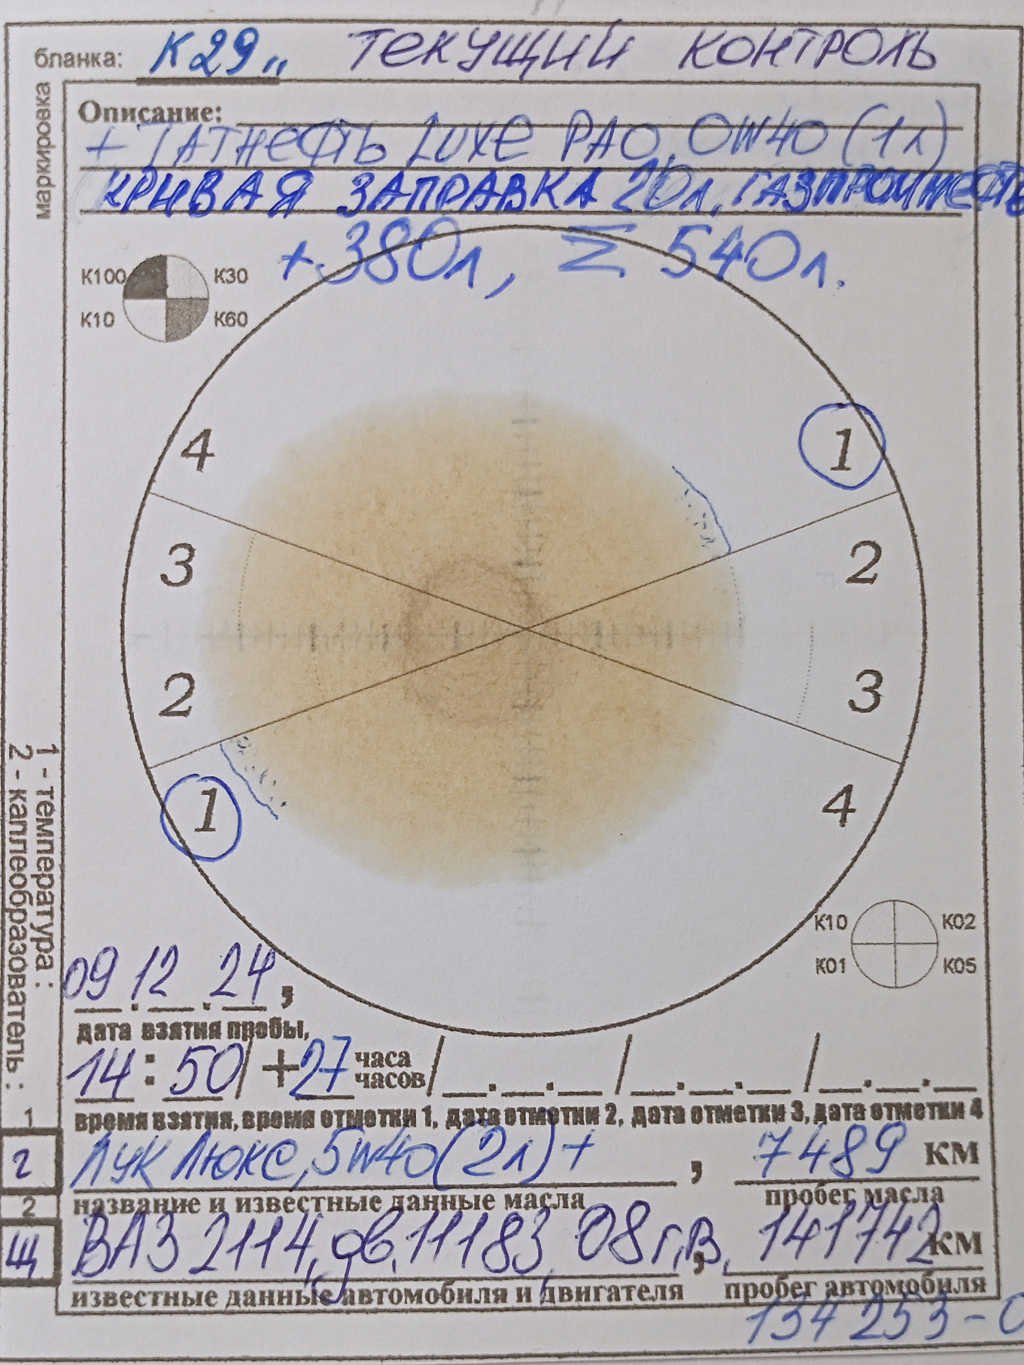 бланка: К29,, ТЕКУЩИЙ КОНТРОЛЬ
маркировка
Описание:
+ ТАТНЕФТЬ LUXE PAO, 0W40 (1л)
КРИВАЯ ЗАПРАВКА 20л, ГАЗПРОМНЕФТЬ
+ 380л, Σ 540л.
К100 К30
К10 К60
4 1
3 2
2 3
1 4
К10 К02
К01 К05
1 - температура :
2 - каплеобразователь :
09.12.24,
дата взятия пробы,
14:50/+27 часа часов/__.__.__/__.__.__/__.__.__
время взятия, время отметки 1, дата отметки 2, дата отметки 3, дата отметки 4
1
2 ЛУК Люкс, 5w40 (2л) + , 7489 км
2 название и известные данные масла пробег масла
Щ ВАЗ 2114, дв. 11183, 08 г.в., 141742 км
известные данные автомобиля и двигателя пробег автомобиля
134253-0